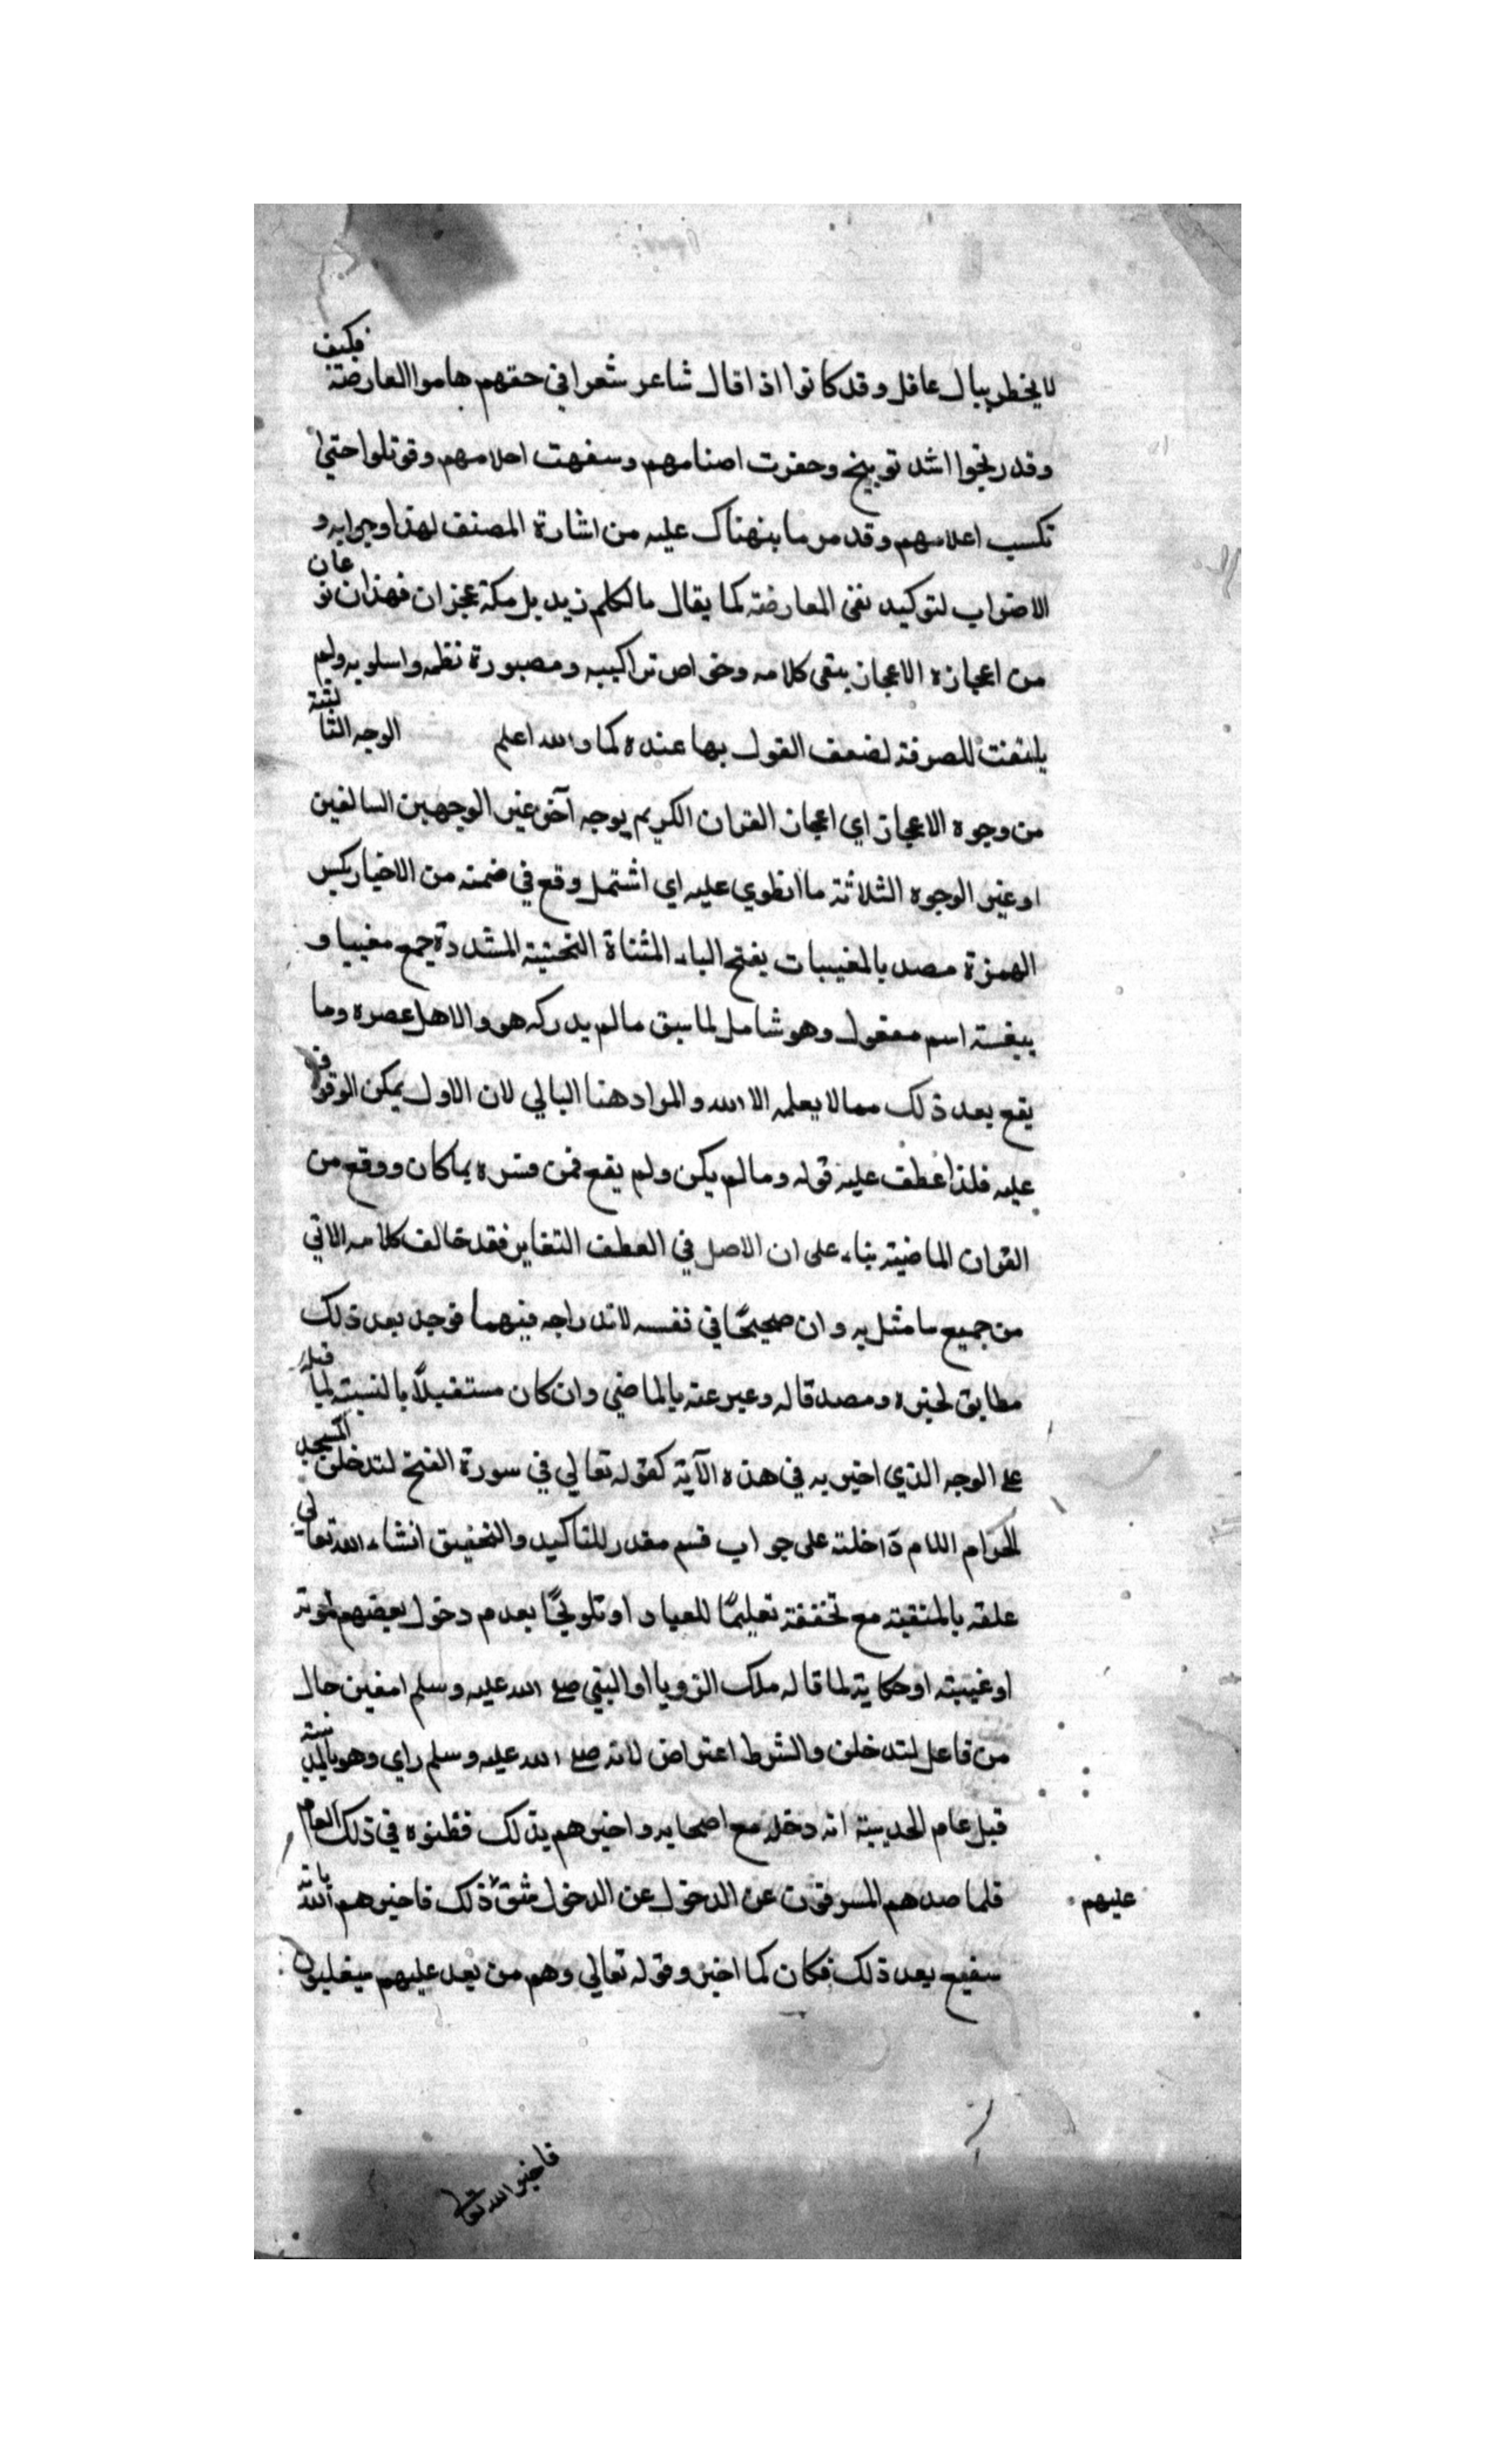 لا يخطر ببال عاقل وقد كانوا اذا قال شاعر شعرا في حقهم هاموا لمعارضته فكيف
وقد ربخوا اشد توبيخ وحقرت اصنامهم وسفهت احلامهم وقوتلوا حتى
نكست اعلامهم وقد مر ما ينهناك عليه من اشارة المصنف لهذا وجوابه و
الاضراب لتوكيد نفي المعارضة كما يقال ما تكلم زيد بل مكة عجزان فهذان نوعان
من اعجازه الاعجاز ببقى كلامه وخواص تراكيبه ومصبورة نظمه واسلوبه ولم
يلتفت للصرفة لضعف القول بها عنده كما والله اعلم الوجه الثالثة
من وجوه الاعجاز اي اعجاز القران الكريم بوجه آخر غير الوجهين السالفين
او غير الوجوه الثلاثة ما انطوي عليه اي اشتمل وقع في ضمنه من الاخبار بكسر
الهمزة مصد بالمغيبات بفتح الباء المثناة التحتية المشددة جمع مغيبا و
ببغسة اسم مفعول وهو شامل لما سبق ما لم يدركه هو والاهل عصره وما
يقع بعد ذلك مما لا يعلمه الا الله والمراد هنا البالي لان الاول يمكن الوقوف
عليه فلذا عطف عليه قوله وما لم يكن ولم يقع فمن فسره بما كان ووقع من
القران الماضية بناء على ان الاصل في العطف التغاير فقد خالف كلامه الاتي
من جميع ما مثل به وان صحيحًا في نفسه لاندراجه فيهما فوجد بعد ذلك
مطابق لخبره ومصد قاله وعبر عنه بالماضي وان كان مستقبلًا بالنسبة لما قبله
على الوجه الذي اخبر به في هذه الآية كقوله تعالي في سورة الفتح لتدخلن المسجد
الحرام اللام داخلة على جواب قسم مقدر للتاكيد والتحقيق انشاء الله تعالي
علقه بالمنقية مع تحققة تعليمًا للعباد او تلويحًا بعدم دخول بعضهم لموته
او غيبته او حكاية لما قاله ملك الرويا او النبي صلى الله عليه وسلم امنين حال
من فاعل لتدخلن والشرط اعتراض لانه صلى الله عليه وسلم راي وهو بالمدينة
قبل عام الحديبية انه دخله مع اصحابه واخبرهم بذلك فظنوه في ذلك العام
فلما صدهم المسرقون عن الدخول عن الدخول شق ذلك فاخبرهم بانه
عليهم
سيقع بعد ذلك فكان كما اخبر وقوله تعالي وهم من بعد عليهم سيغلبون
فاخبر الله تعالى